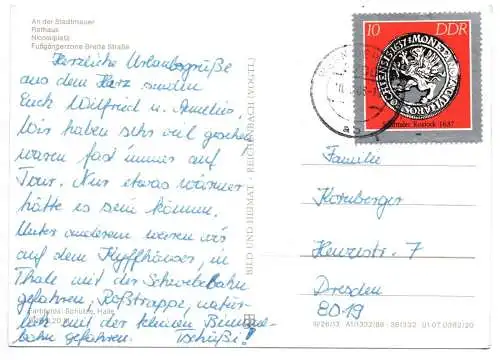 An der Stadtmauer
Rathaus
Nicolaiplatz
Fußgängerzone Breite Straße
Herzliche Urlaubsgrüße
aus dem Harz senden
Euch Wilfried u. Annelies.
Wir haben sehr viel gesehen
waren fast immer auf
Tour. Nur etwas wärmer
hätte es sein können.
Unter anderem waren wir
auf dem Kyffhäuser, in
Thale mit der Schwebebahn
gefahren, Roßtrappe, natür-
lich mit der kleinen Bimmel-
bahn gefahren. Tschüß!
BILD UND HEIMAT · REICHENBACH (VOGTL)
10 DDR
Stadttaler Rostock 1637
Familie
Kornberger
Henzestr. 7
Dresden
8019
IV/26/13 A1/1332/86 01 07 0362/20